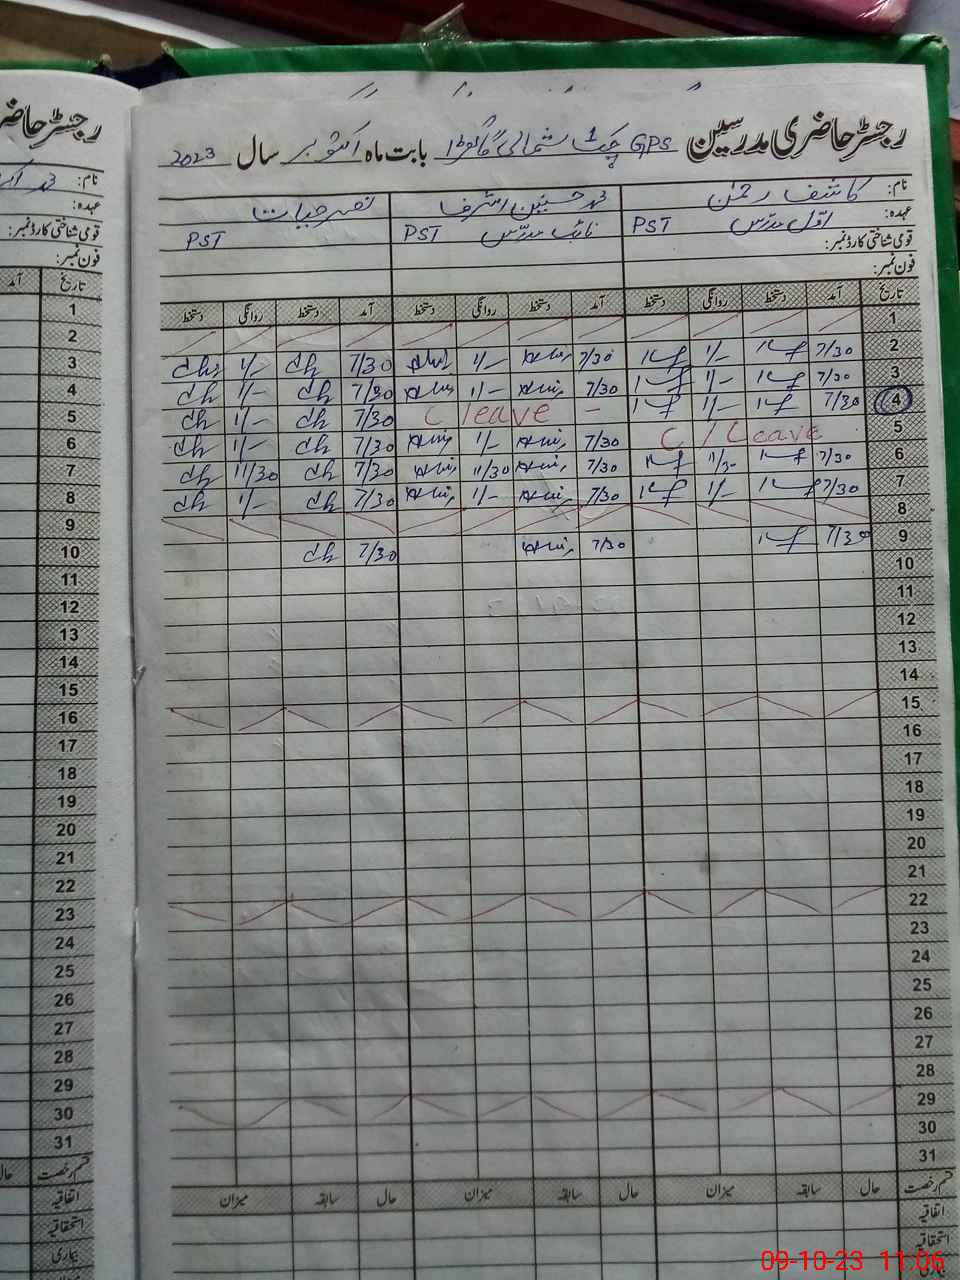 رجسٹر حاضری مدرسین GPS چک 1 شمالی بابت ماہ اکتوبر سال 2023
نام: کاشف رحمٰن محمد حسنین اشرف نصر حیات
عہدہ: اول مدرس PST نائب مدرس PST PST
قومی شناختی کارڈ نمبر:
فون نمبر:
تاریخ آمد دستخط روانگی دستخط آمد دستخط روانگی دستخط آمد دستخط روانگی دستخط
1
2 7/30 1/- 7/30 1/- 7/30 1/-
3 7/30 1/- 7/30 1/- 7/30 1/-
4 7/30 1/- C leave - 7/30 1/-
5 C/Leave 7/30 1/- 7/30 1/-
6 7/30 11/30 7/30 11/30 7/30 11/30
7 7/30 1/- 7/30 1/- 7/30 1/-
8
9 7/30 7/30 7/30
10
11
12
13
14
15
16
17
18
19
20
21
22
23
24
25
26
27
28
29
30
31
قسم رخصت حال سابقہ میزان حال سابقہ میزان حال سابقہ میزان
اتفاقیہ
استحقاقیہ
بیماری
رجسٹر حاضر
نام:
عہدہ:
قومی شناختی کارڈ نمبر:
فون نمبر:
تاریخ آمد
1
2
3
4
5
6
7
8
9
10
11
12
13
14
15
16
17
18
19
20
21
22
23
24
25
26
27
28
29
30
31
قسم رخصت حال
اتفاقیہ
استحقاقیہ
بیماری
09-10-23 11:06